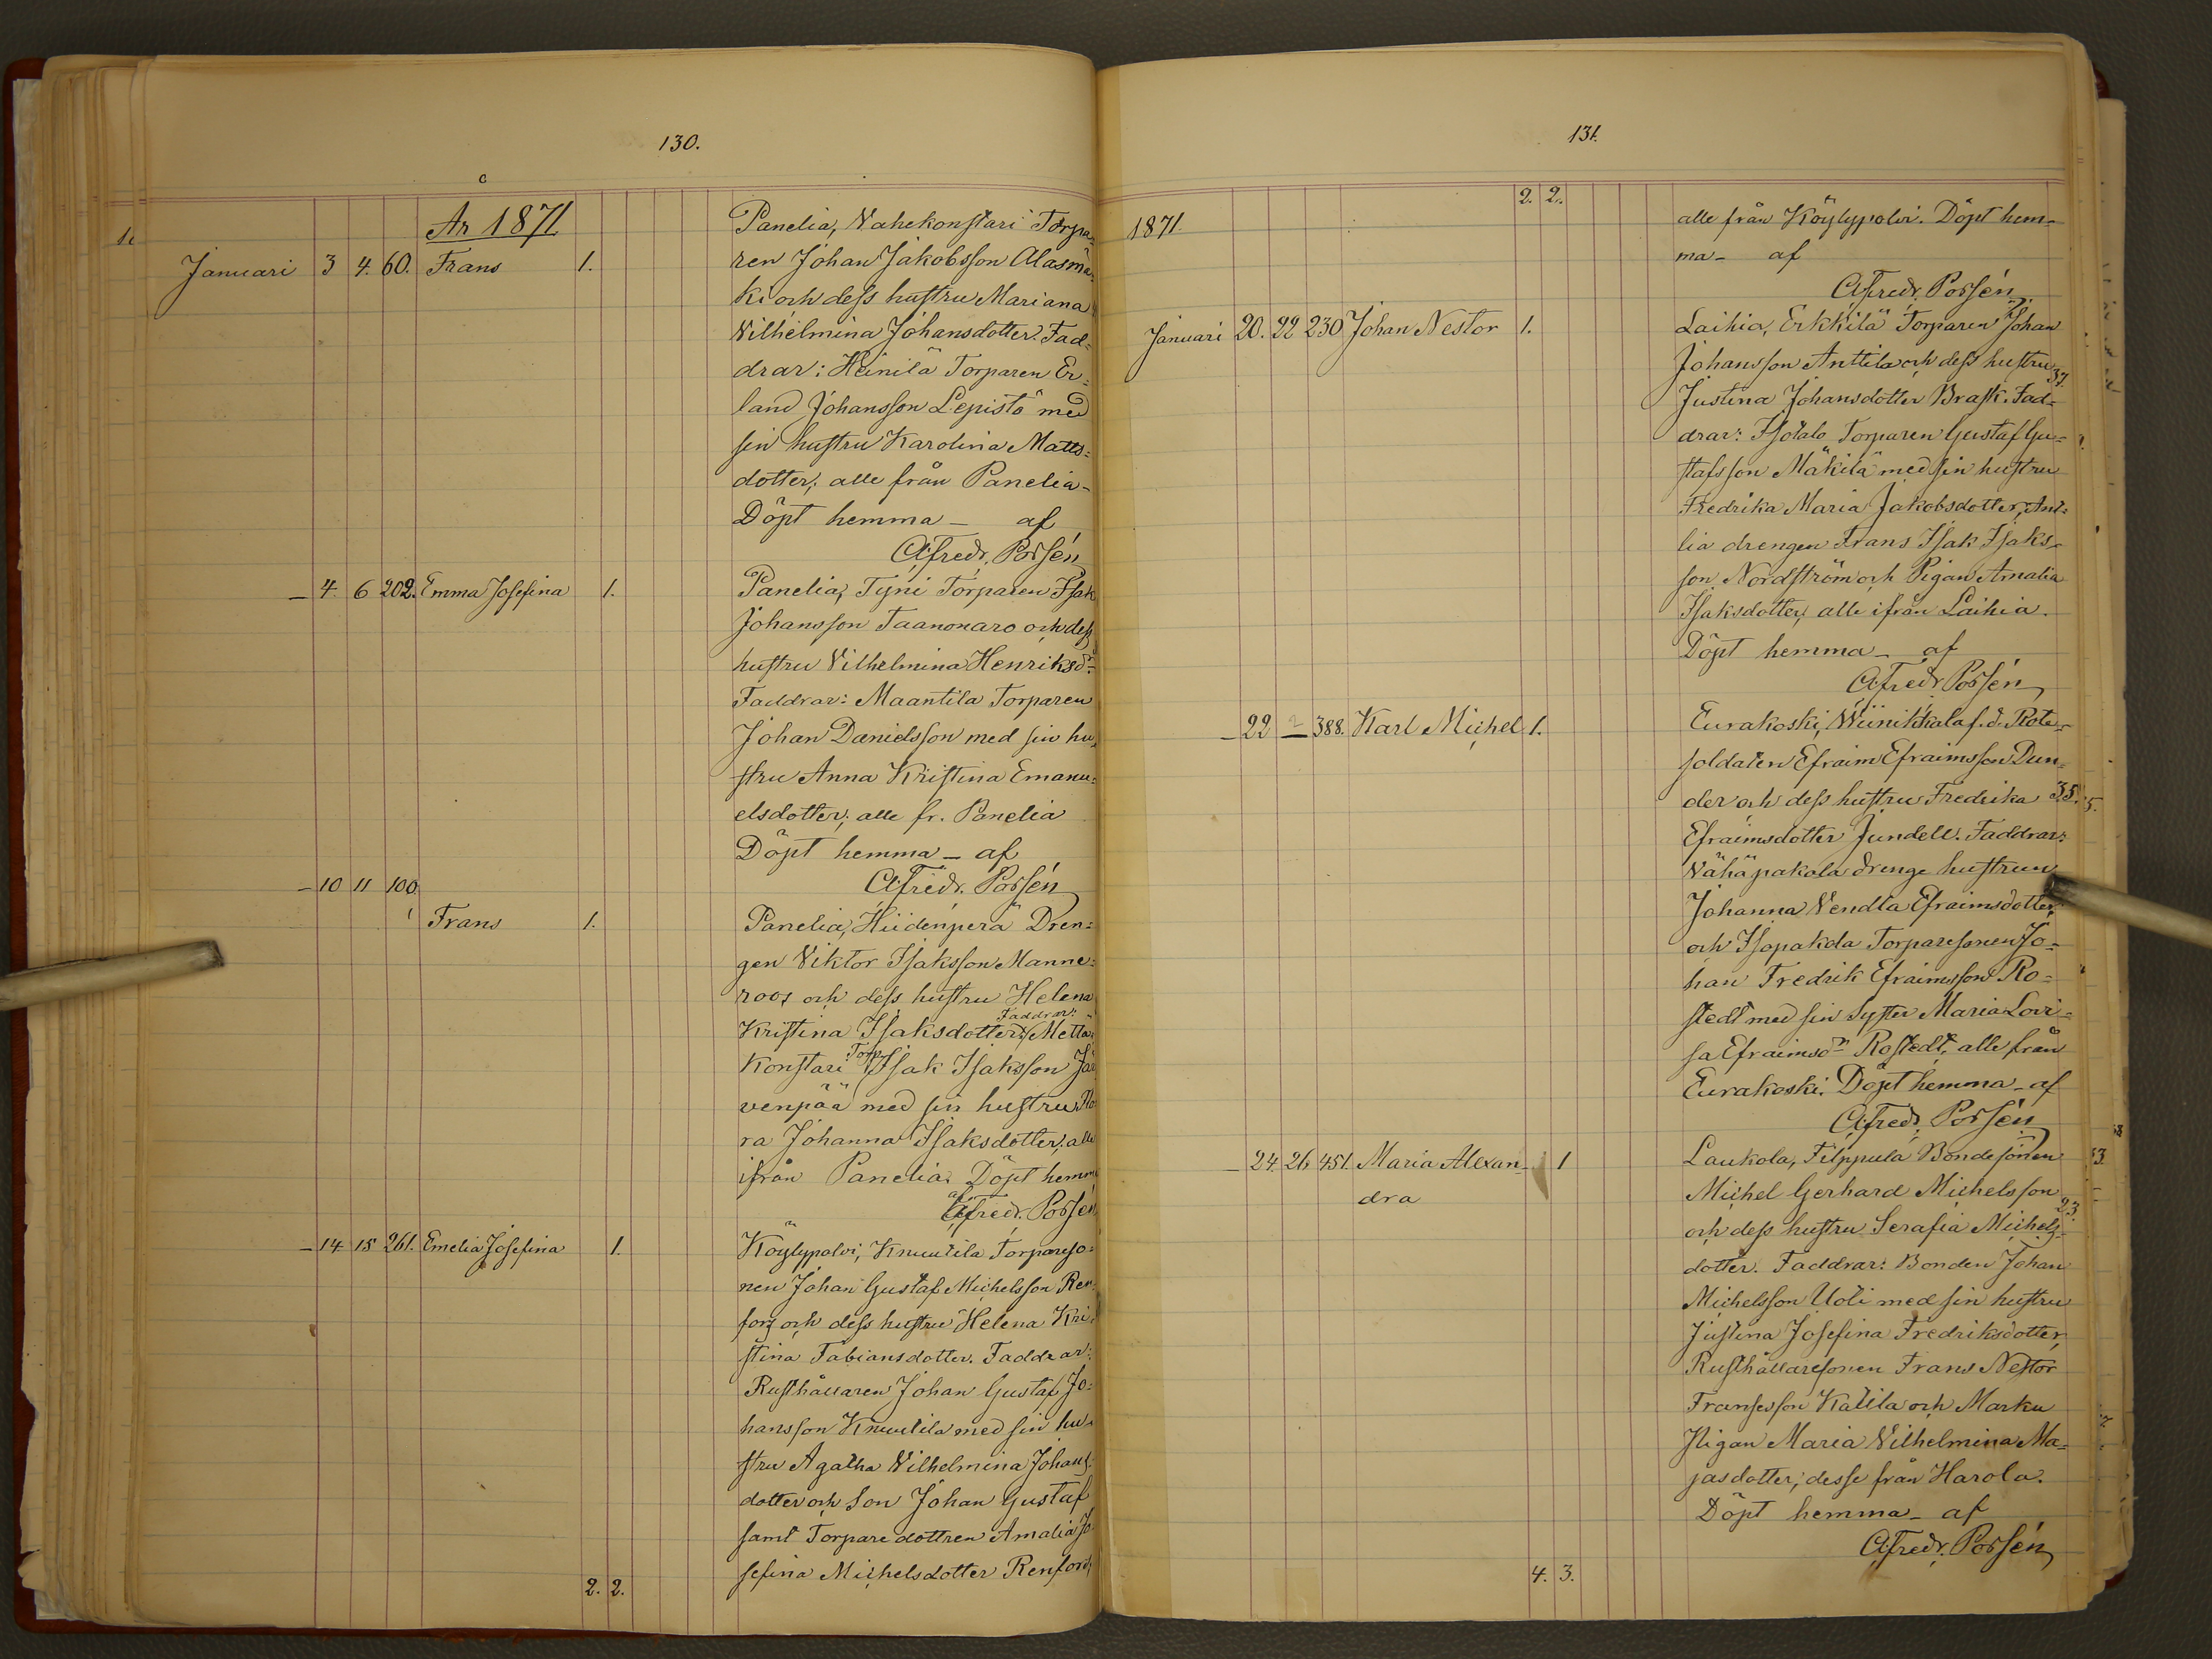 130.
Ar 1871
Januari 3 4. 60. Frans 1. Panelia, Vahekonstari Torpa-
ren Johan Jakobsson Alasmä-
ki och dess hustru Mariana
Vilhelmina Johansdotter. Fad-
drar: Heinilä Torparen Er-
land Johansson Lepistö med
sin hustru Karolina Matts-
dotter; alle från Panelia-
Döpt hemma – af
Alfredr. Porsén
– 4. 6 202. Emma Josefina 1. Panelia, Tyni Torparen Isak
Johansson Taanonaro och dess
hustru Vilhelmina Henriksdr
Faddrar: Maantila Torparen
Johan Danielsson med sin hu-
stru Anna Kristina Emanu-
elsdotter; alle fr. Panelia
Döpt hemma – af
Alfredr. Porsén
– 10 11 100.
Frans 1. Panelia, Hiidenperä Dren-
gen Viktor Isaksson Manne-
roos och dess hustru Helena
Kristina Isaksdotter. Faddrar: Mettä-
konstari Torp. Isak Isaksson Jär-
venpää med sin hustru Flo-
ra Johanna Isaksdotter, alle
ifrån Panelia. Döpt hemma
af Alfredr. Porsén
– 14 15 261. Emelia Josefina 1. Köylypolvi, Knuutila Torpareso-
nen Johan Gustaf Michelsson Ren-
fors och dess hustru Helena Kri-
stina Fabiansdotter. Faddrar:
Rusthållaren Johan Gustaf Jo-
hansson Knuutila med sin hu-
stru Agatha Vilhelmina Johans-
dotter och Son Johan Gustaf
samt Torparedottren Amalia Jo-
sefina Michelsdotter Renfors
2. 2.
131.
2. 2.
1871 alle från Köylypolvi. Döpt hem-
ma – af
Alfredr. Porsén
Januari 20. 22 230 Johan Nestor 1. Laihia, Erkkilä Torparen Johan
Johansson Anttila och dess hustru 37.
Justina Johansdotter Brask. Fad-
drar: Isotalo Torparen Gustaf Gu-
stafsson Mäkilä med sin hustru
Fredrika Maria Jakobsdotter, Ant-
lia drengen Frans Isak Isaks-
son Nordström och Pigan Amalia
Isaksdotter; alle ifrån Laihia.
Döpt hemma – af
Alfredr. Porsén
– 22 – 388. Karl Michel 1. Eurakoski, Wiinikkala f.d. Rote-
soldaten Efraim Efraimsson Dun-
der och dess hustru Fredrika 35.
Efraimsdotter Jundell. Faddrar:
Vähäpakala drenge hustrun
Johanna Vendla Efraimsdotter,
och Isopakola Torparesonen Jo-
han Fredrik Efraimsson Ro-
stedt med sin Syster Maria Lovi-
sa Efraimsdr Rostedt, alle från
Eurakoski. Döpt hemma – af
Alfredr. Porsén
– 24. 26. 451 Maria Alexan- 1 Laukola, Filppula Bondesonen
dra Michel Gerhard Michelsson 23.
och dess hustru Serafia Michels-
dotter. Faddrar: Bonden Johan
Michelsson Uoti med sin hustru
Justina Josefina Fredriksdotter,
Rusthållaresonen Frans Nestor
Fransson Katila och Marku
Pigan Maria Vilhelmina Ma-
jasdotter; desse från Harola.
Döpt hemma – af
Alfredr. Porsén
4. 3.